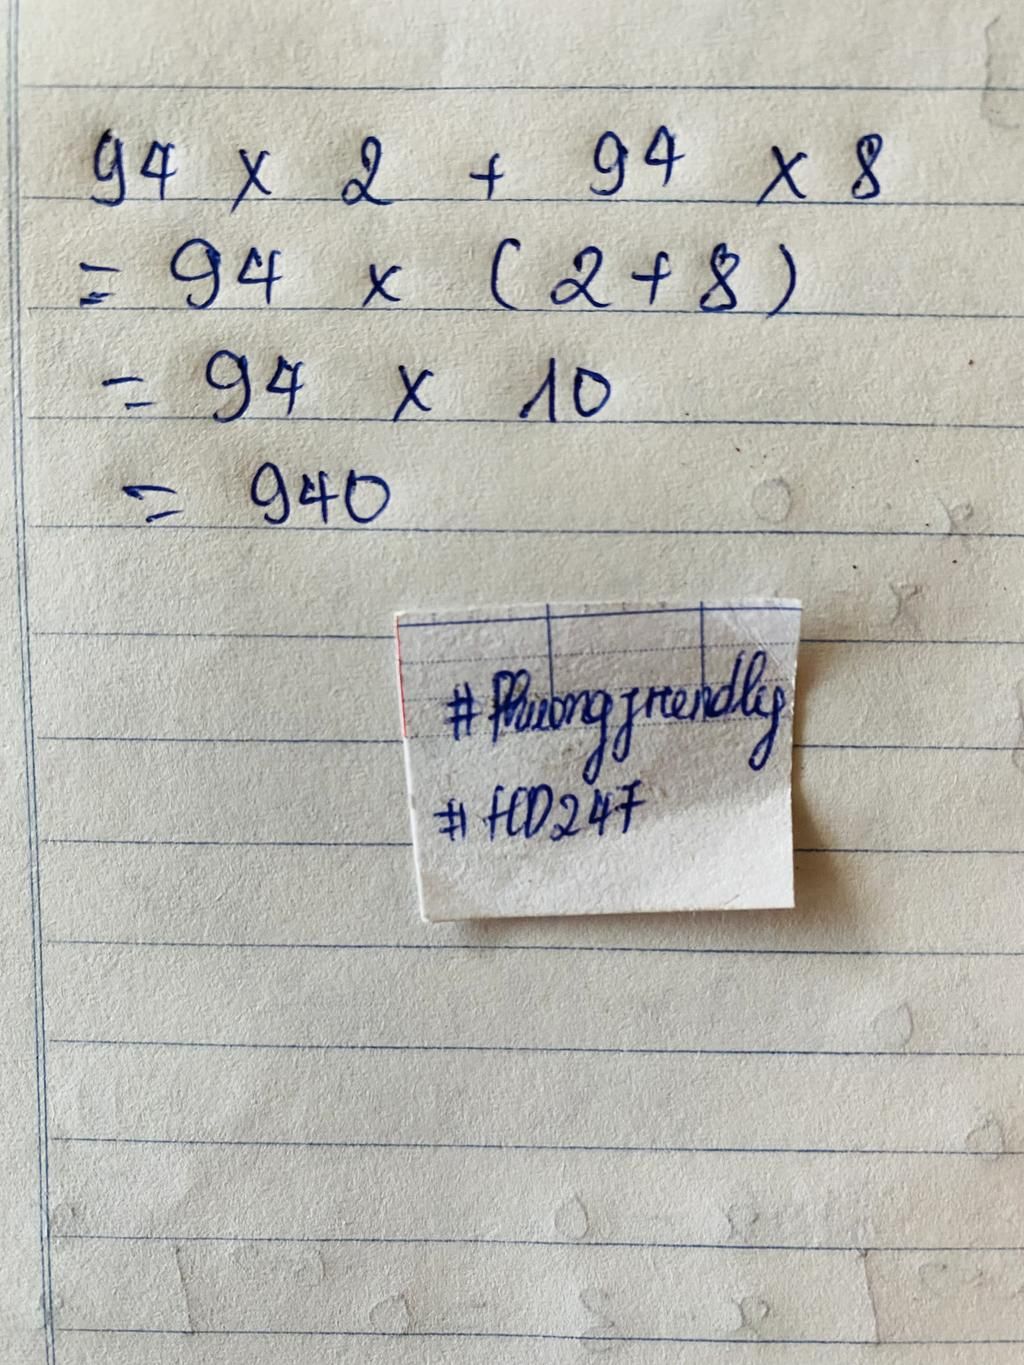 94 x 2 + 94 x 8
= 94 x (2+8)
= 94 x 10
= 940
# Phuongfriendly
# HD247